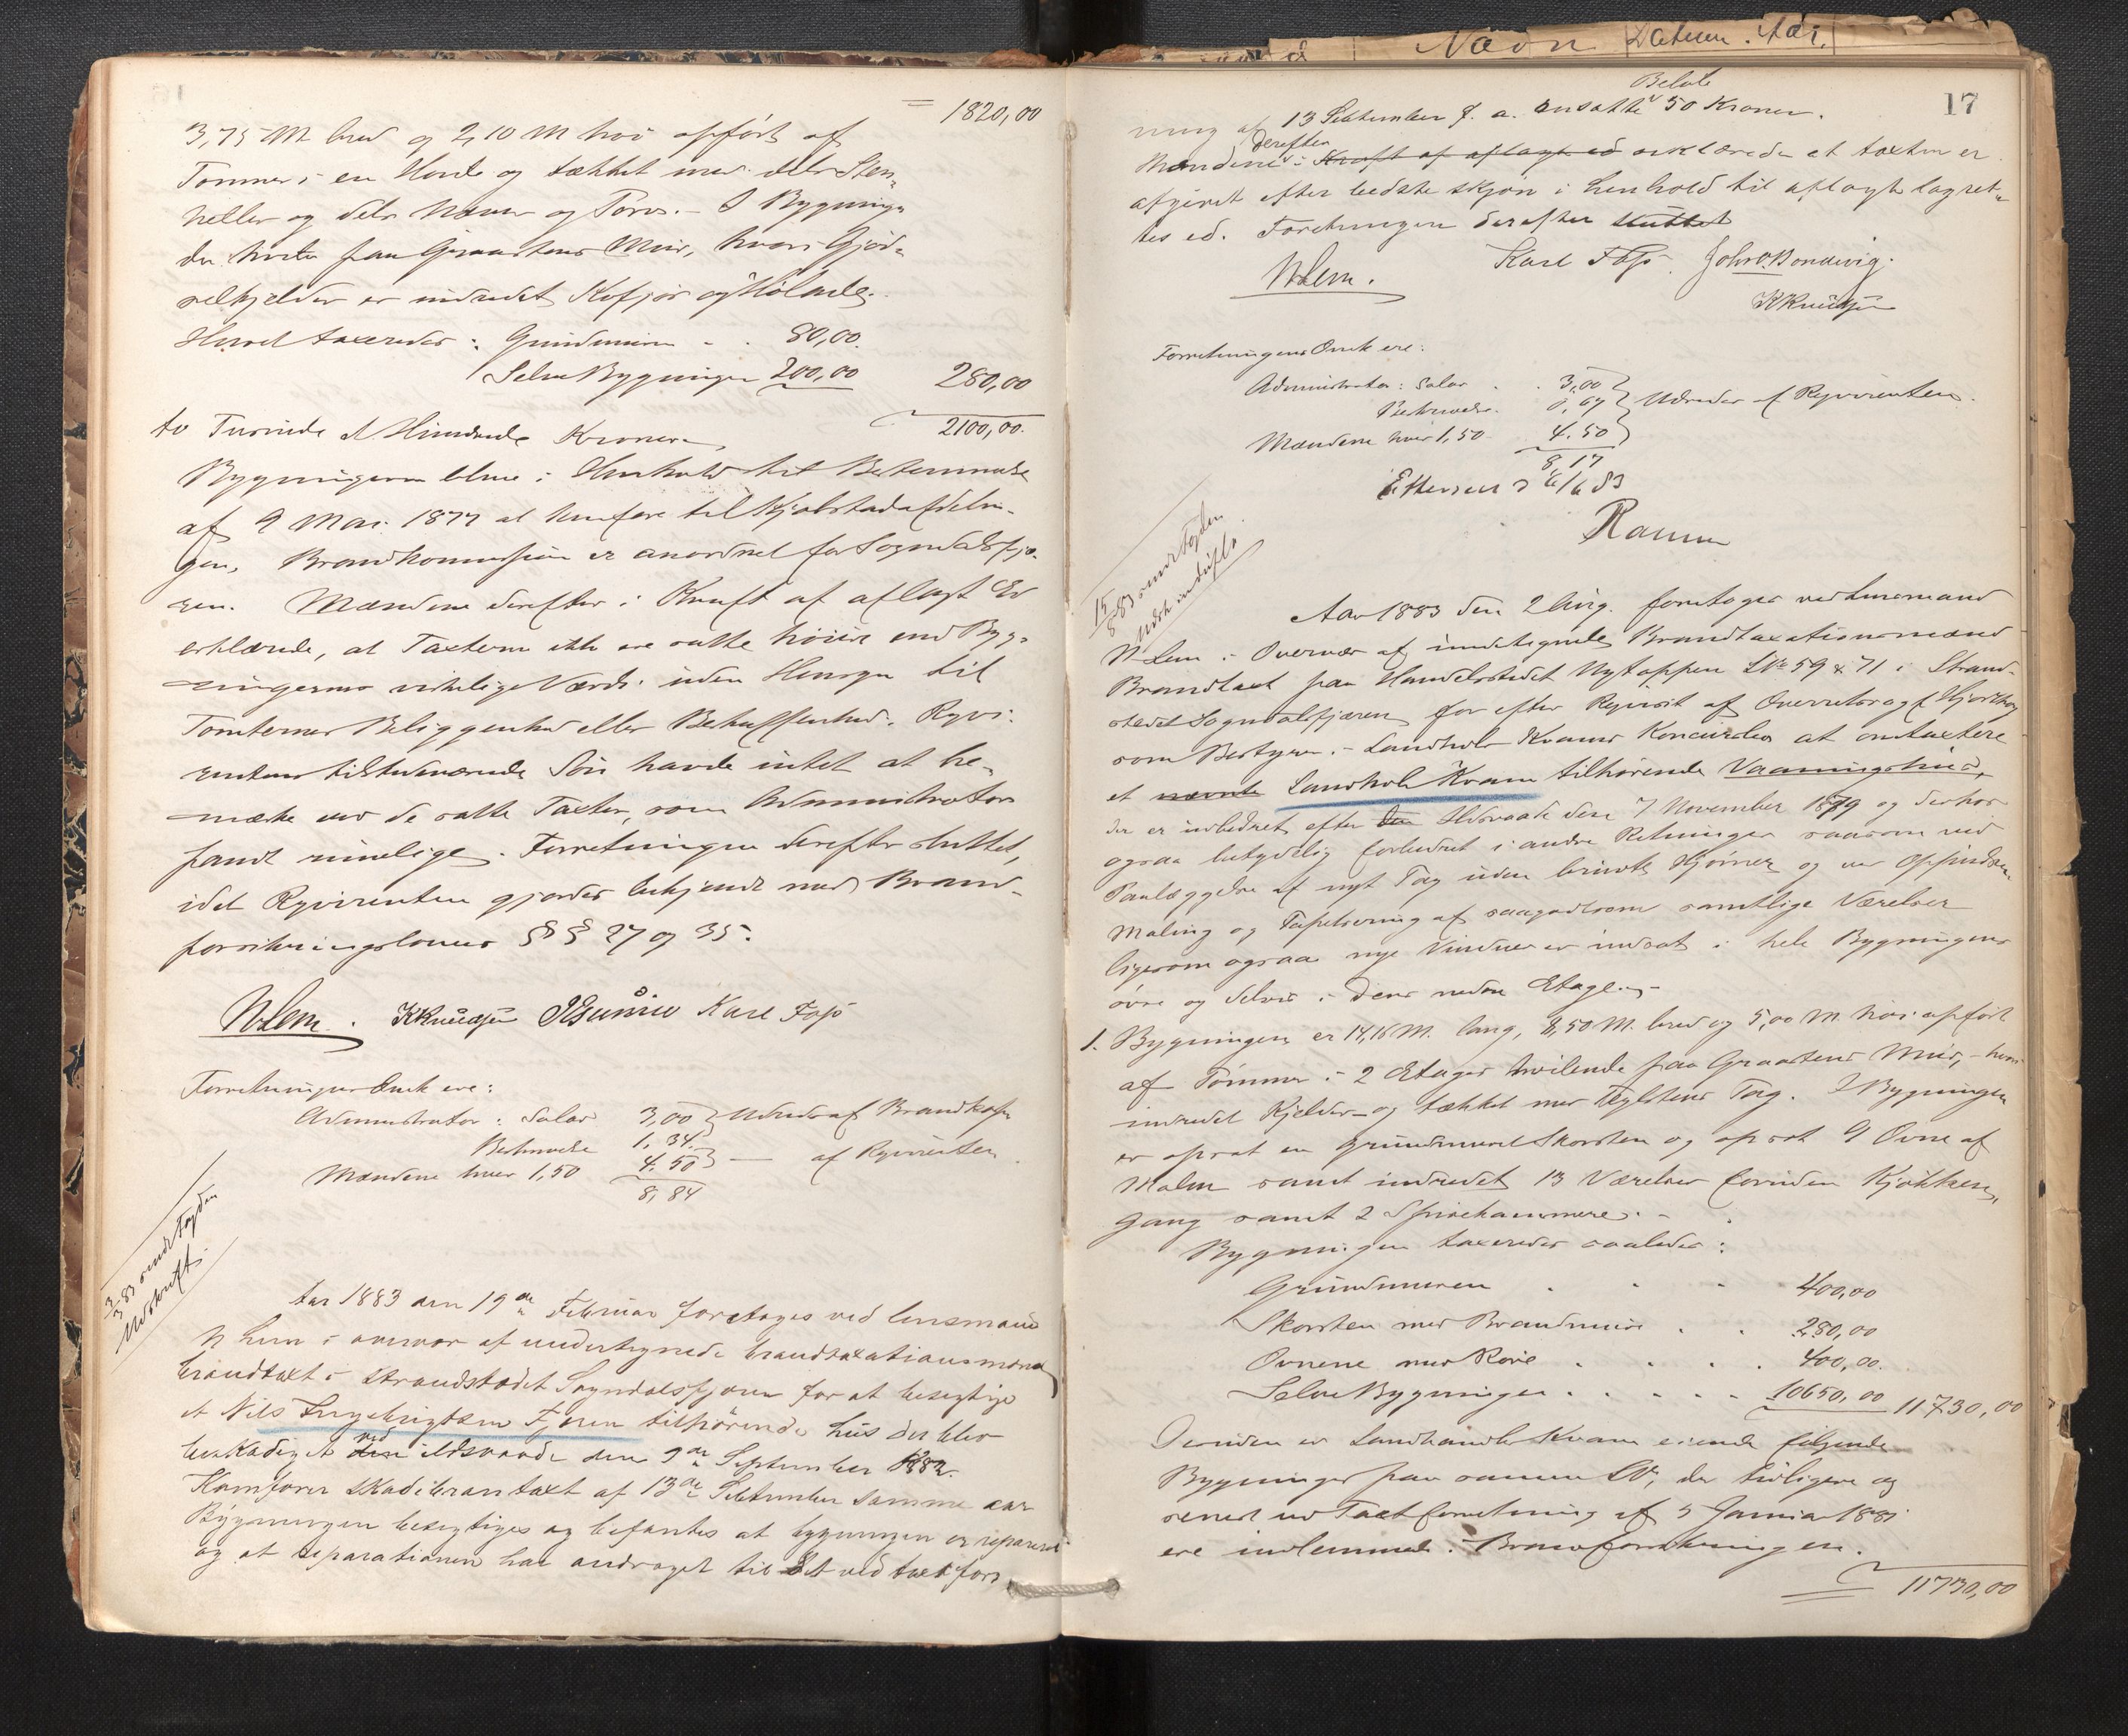 = 1820,00
3,75 M bred og 2,10 M høi opført af
Tømmer i en Høide og tækket med dels Sten-
heller og dels Næver og Torv. - I Bygningen
der hviler paa Graastens Muur, hvori Gjød-
selkjelder er indredet Kofjøs og Hølade.
Hvoraf taxeredes: Grundmuren - . 80,00.
Selve Bygningen 200,00 280,00
to Tusinde et Hundrede Kroner 2100,00.
Bygningerne blive i Henhold til Bestemmelse
af 9 Mai 1877 at henføre til Kjøbstadafdelin-
gen, Brandkommission er anordnet for Sogndalsfjæ-
ren. Mændene derefter i Kraft af aflagt Ed
erklærede, at Taxterne ikke ere satte høiere end Byg-
ningernes virkelige Værdi uden Hensyn til
Tomternes Beliggenhed eller Beskaffenhed. Rqvi-
rentens tilstedeværende Søn havde intet at be-
mærke ved de satte Taxter, som Administrator
fandt rimelige. Forretningen derefter sluttet,
idet Rqvirenten gjordes bekjendt med Brand-
forsikringslovens §§ 27 og 35.
N Lem. K Knudsen Karl Foss
Forretningens Omk ere:
Administrator: Salær 3,00 } Udredes af Brandkassen
Beskrivelse 1,34
Mændene hver 1,50 4.50 } — af Rqvirenten
8,84
3/3 83 sendt Fogden
Udskrift.
Aar 1883 den 19de Februar foretoges ved lensmand
N Lem i overvær af undertegnede brandtaxationsmænd
brandtaxt i Strandstedet Sogndalsfjæren for at besigtige
et Nils Ingebrigtsen Fjæren tilhørende hus der blev
beskadiget den ved ildsvaade den 9de September 1882.
Jamfører skadebrantaxt af 13de September samme aar
Bygningen besigtiges og befantes at bygningen er reparert
og at reparationen har andraget til det ved taxtfor-
17
ning af 13 September f. a. ansatte Beløb 50 Kroner.
Mændene derefter i Kraft af aflagt ed erklærede at taxten er
afgivet efter bedste skjøn i henhold til aflagt lagret-
tes ed. Foretningen derefter sluttet
N Lem. Karl Foss. John O. Bondevig.
K Knudsen
Forretningens Omk ere:
Administrator: Salær . . 3,00 }
Beskrivelse. 0,67 } Udredes af Rqvirenten.
Mændene hver 1,50 4.50 }
8,17
Efterseet d 6/6 83
15/8 83 sendt Fogden
Udsk indkgl.
Aar 1883 den 2 Aug. foretoges ved Lensmand
N Lem i Overvær af undertegnede Brandtaxationsmænd
Brandtaxt paa Handelsstedet Nytoppen LNo 59 & 71 i Strand-
stedet Sogndalsfjæren for efter Rqvisit af Overretssagf. Hjorthøy
som Bestyrer i Landhdl. Kvams Konkursbo at omtaxere
et nævnte Landhdl Kvam tilhørende Vaaningshus,
der er udbedret efter den Ildsvaade den 7 November 1879 og derhos
ogsaa betydelig forbedret i andre Retninger saasom ved
Paalæggelse af nyt Tag uden brudte Hjørner og ved Oppudsen
Maling og Tapetsering af saagodtsom samtlige Værelser
ligesom ogsaa nye Vinduer er indsat i hele Bygningens
øvre og delvis i dens nedre Etage. -
1. Bygningen er 14,16 M. lang, 8,50 M. bred og 5,00 M høi opført
af Tømmer i 2 Etager hvilende paa Graastens Muur, - hvori
indredet Kjelder og tækket med Teglstens Tag. I Bygningen
er opsat en grundmuret Skorsten og opsat 9 Ovne af
Malm samt indredet 13 Værelser foruden Kjøkken,
Gang samt 2 Spisekammere. -
Bygningen taxeredes saaledes:
Grundmuren . . . . 400,00
Skorsten med Brandmure . . 280,00
Ovnene med Rør . . . . 400,00.
Selve Bygningen . . . . . 10650,00 11730,00
Desuden er Landhandler Kvam eiende følgende
Bygninger paa samme LNo, der tidligere og
senest ved Taxtforretning af 5 Januar 1881
ere indlemmede i Brandforsikringen.
11730,00
Navn Datum. Aar.